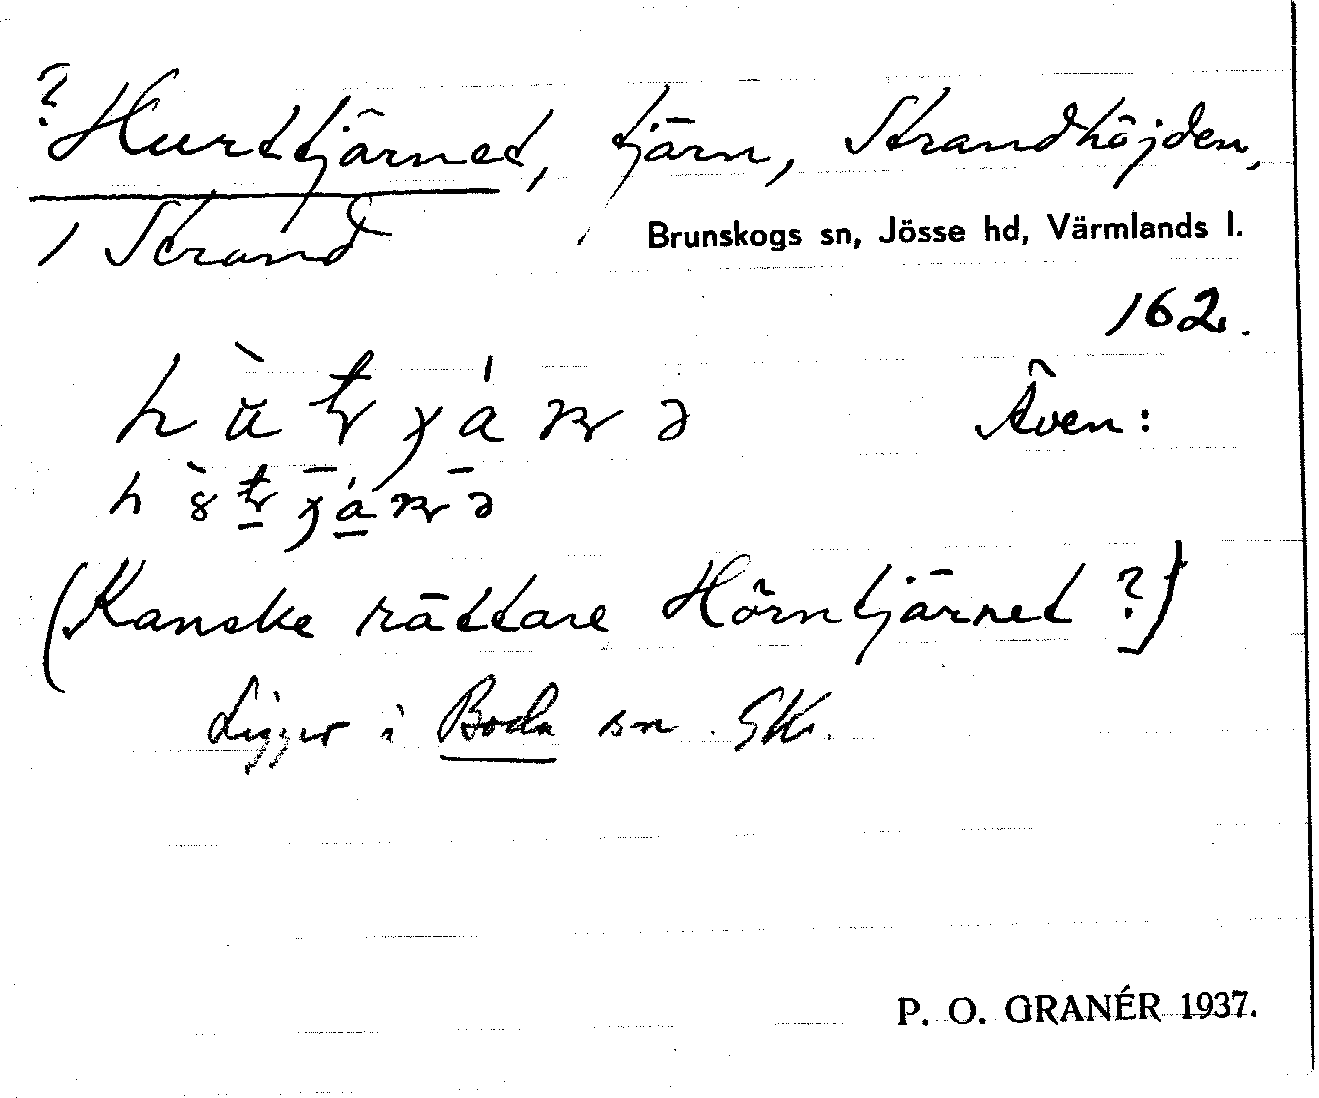 ? Hurttjärnet, tjärn, Strandhöjden,
1 Strand
Brunskogs sn, Jösse hd, Värmlands l.
162.
Även:
(Kanske rättare Hörntjärnet ?)
Ligger i Boda sn. GK.
P. O. GRANÉR 1937.